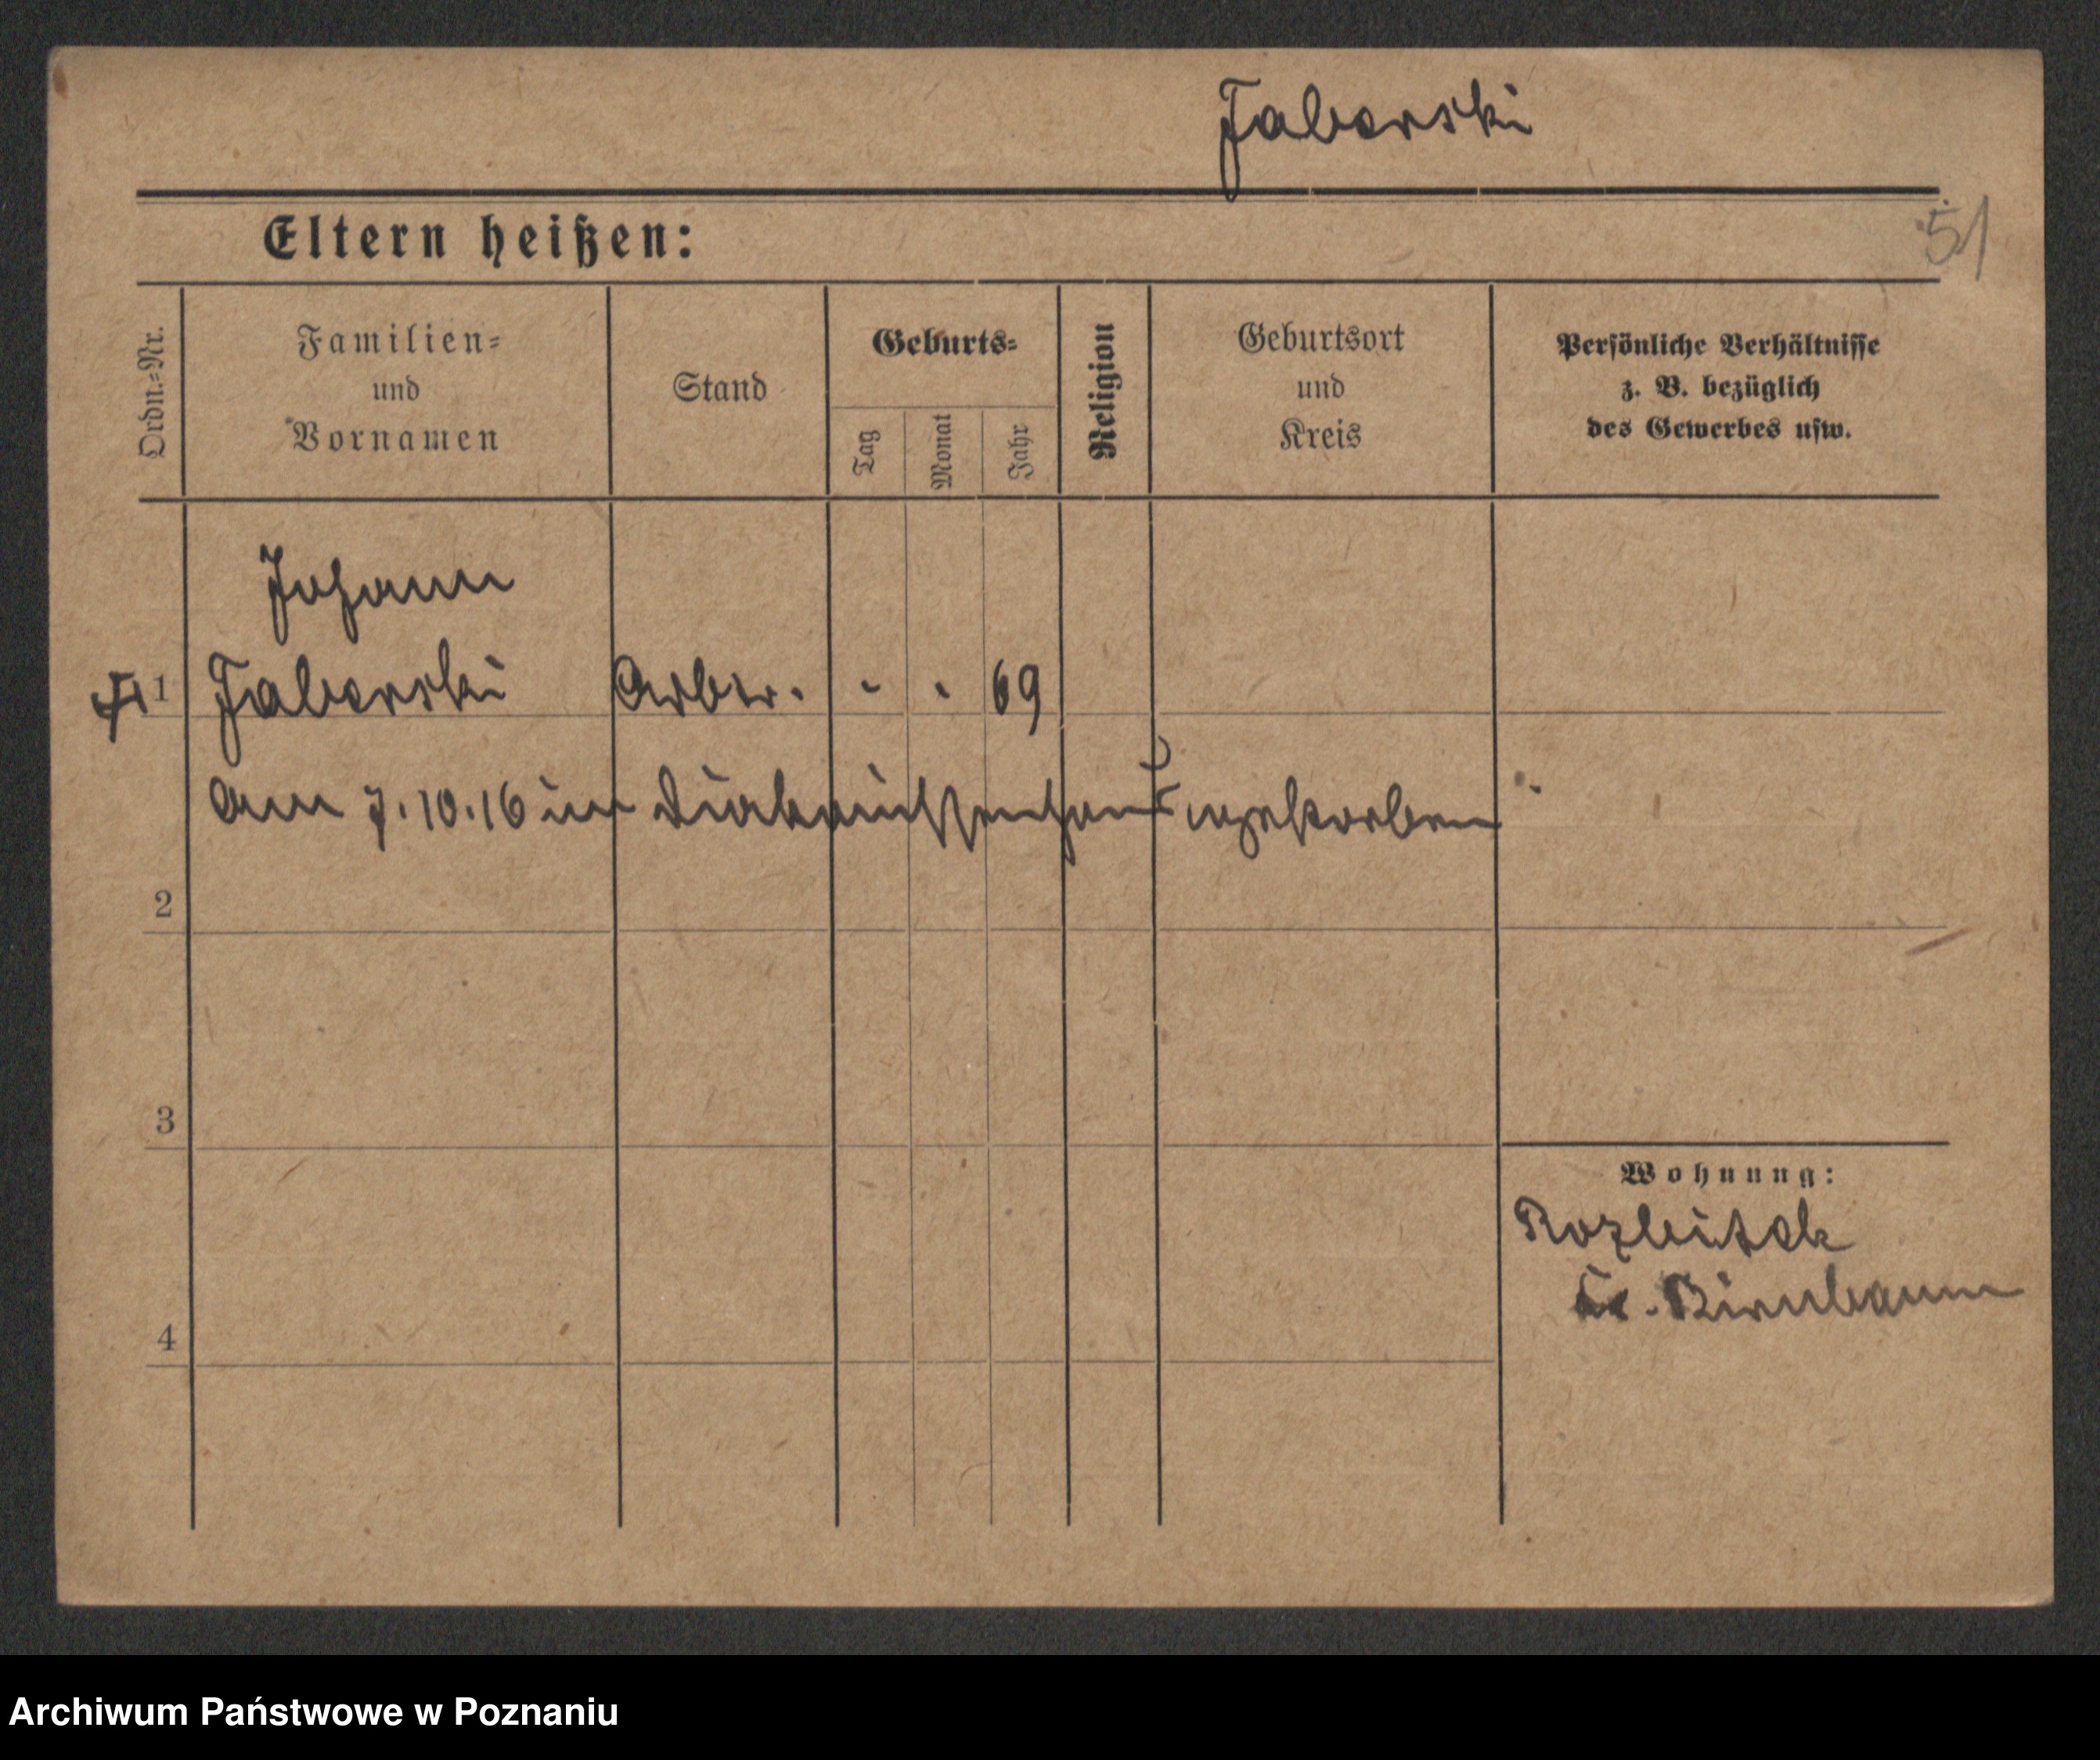 Jaberski
51
Eltern heißen:
Ordn.-Nr.
Familien-
und
Vornamen
Stand
Geburts-
Tag
Monat
Jahr
Religion
Geburtsort
und
Kreis
Persönliche Verhältnisse
z. B. bezüglich
des Gewerbes usw.
Johann
1 Jaberski Arbtr. - - 69
am 7.10.16 im Diakonissenhaus gestorben
2
3
Wohnung:
Rozbitek
Kr. Birnbaum
4
Archiwum Państwowe w Poznaniu